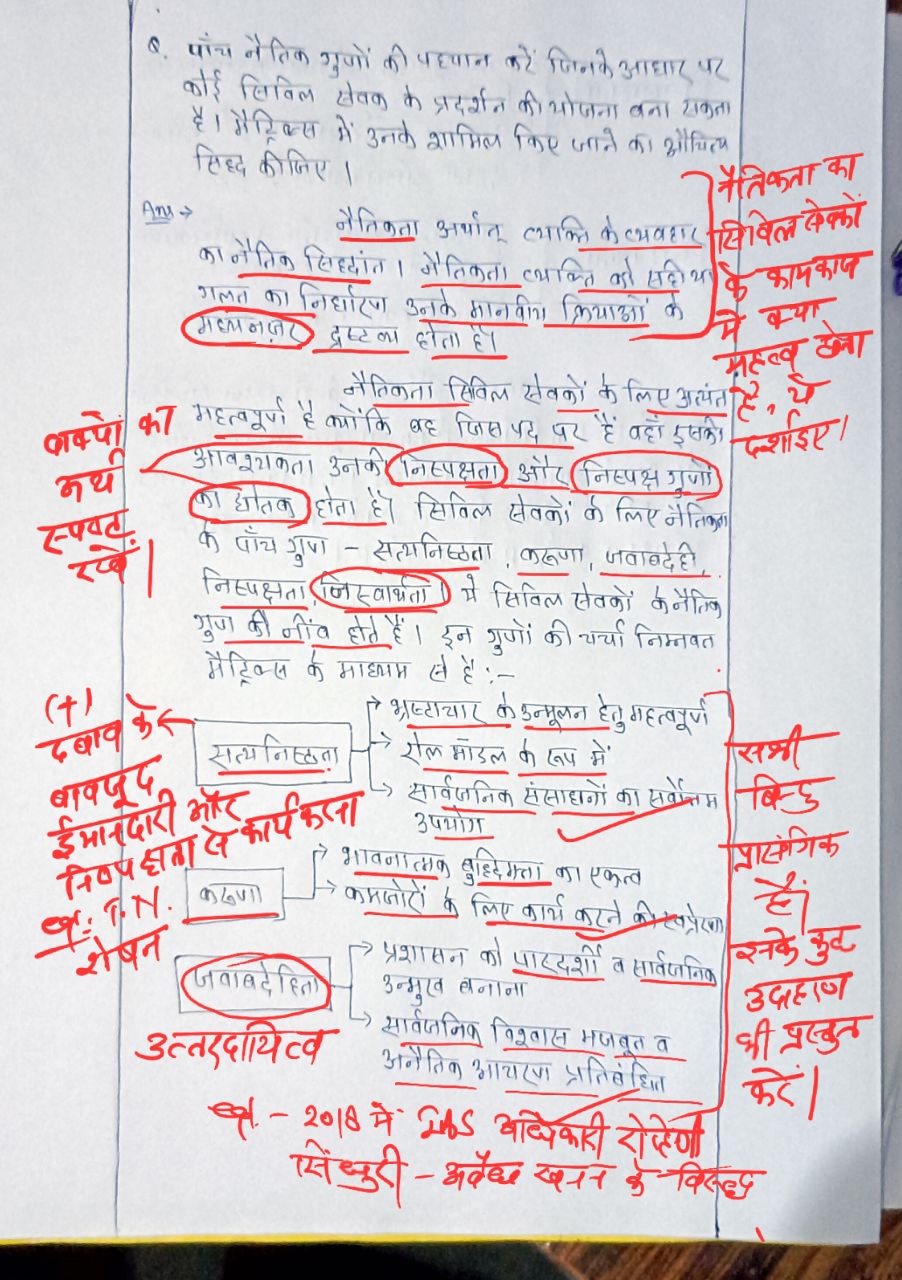 Q. पाँच नैतिक गुणों की पहचान करें जिनके आधार पर
कोई सिविल सेवक के प्रदर्शन की योजना बना सकता
है। मैट्रिक्स में उनके शामिल किए जाने का औचित्य
सिद्ध कीजिए।
Ans →
नैतिकता अर्थात् व्यक्ति के व्यवहार
का नैतिक सिद्धांत। नैतिकता व्यक्ति को सही या
गलत का निर्धारण उनके मानवीय क्रियाओं के
मध्यनज़र द्रष्टव्य होता है।
नैतिकता का
सिविल सेवकों
के कामकाज
में क्या
महत्व होता
है, ये
दर्शाइए।
नैतिकता सिविल सेवकों के लिए अत्यंत
महत्वपूर्ण है क्योंकि वह जिस पद पर हैं वहाँ इसकी
आवश्यकता उनकी निस्पक्षता और निस्पक्ष गुणों
का द्योतक होता है। सिविल सेवकों के लिए नैतिकता
के पाँच गुण - सत्यनिष्ठता, करूणा, जवाबदेही,
निस्पक्षता, निस्वार्थता। ये सिविल सेवकों के नैतिक
गुण की नींव होते हैं। इन गुणों की चर्चा निम्नवत
मैट्रिक्स के माध्यम से है :-
वाक्यों का
अर्थ
स्पष्ट
रखें।
सत्यनिष्ठता
→ भ्रष्टाचार के उन्मूलन हेतु महत्वपूर्ण
→ रोल मॉडल के रूप में
→ सार्वजनिक संसाधनों का सर्वोत्तम
उपयोग
(+)
दबाव के
बावजूद
ईमानदारी और
निष्पक्षता से कार्य करना
उदा: T.N.
शेषन
करूणा
→ भावनात्मक बुद्धिमत्ता का एकत्व
→ कमजोरों के लिए कार्य करने की स्वप्रेरणा
जवाबदेहिता
→ प्रशासन को पारदर्शी व सार्वजनिक
उन्मुख बनाना
→ सार्वजनिक विश्वास मजबूत व
अनैतिक आचरण प्रतिबंधित
उत्तरदायित्व
सभी
बिन्दु
प्रासंगिक
हैं।
इनके कुछ
उदाहरण
भी प्रस्तुत
करें।
उदा. - 2018 में IAS अधिकारी रोहिणी
सिंधुरी - अवैध खनन के विरूद्ध